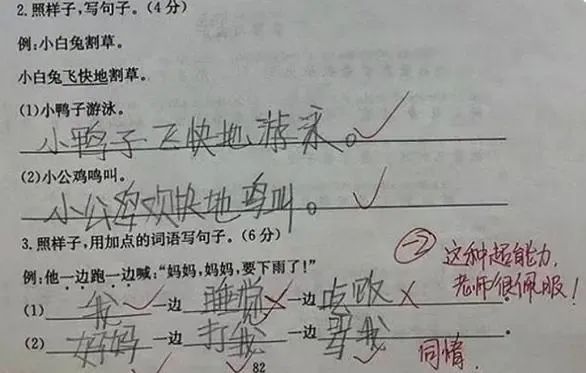 2.照样子,写句子。(4分)
例:小白兔割草。
小白兔飞快地割草。
(1)小鸭子游泳。
小鸭子飞快地游泳。
(2)小公鸡鸣叫。
小公鸡欢快地鸣叫。
3.照样子,用加点的词语写句子。(6分)
例:他一边跑一边喊:“妈妈,妈妈,要下雨了!”
(1) 我 一边 睡觉 一边
(2) 妈妈 一边 打我 一边 骂我 。
-2 这种超能力,
老师很佩服!
同情.
82